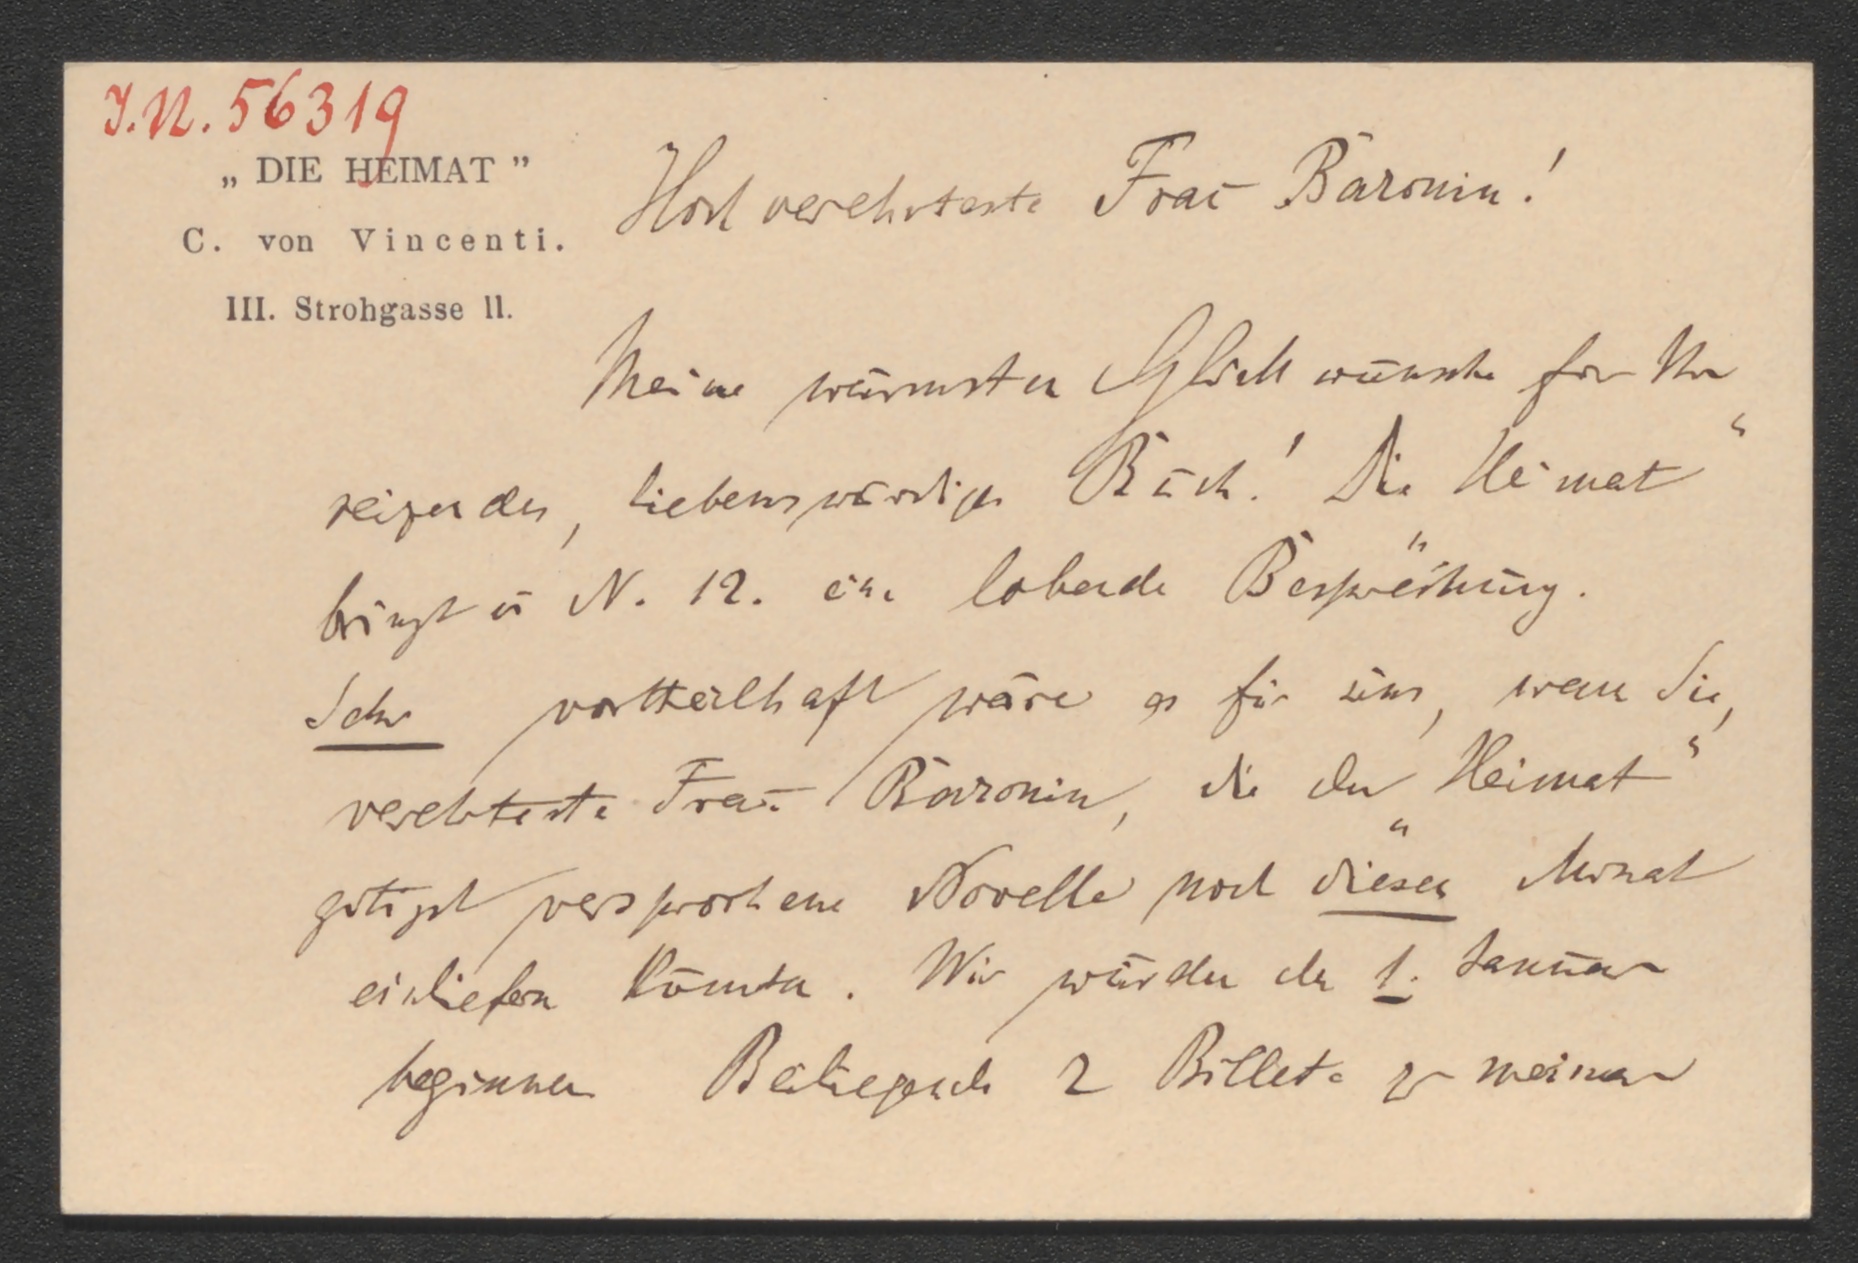 J.N. 56319
„DIE HEIMAT”
C. von Vincenti.
III. Strohgasse 11.
Hochverehrteste Frau Baronin!
Meine wärmsten Glückwünsche für Ihr
reizendes, liebenswürdiges Buch! Die „Heimat“
bringt in N. 12. eine lobende Besprechung.
Sehr vortheilhaft wäre es für uns, wenn Sie,
verehrteste Frau Baronin, die der „Heimat“
gütigst versprochene Novelle noch diesen Monat
einliefern könnten. Wir würden den 1. Januar
beginnen Beiliegende 2 Billete zu meiner